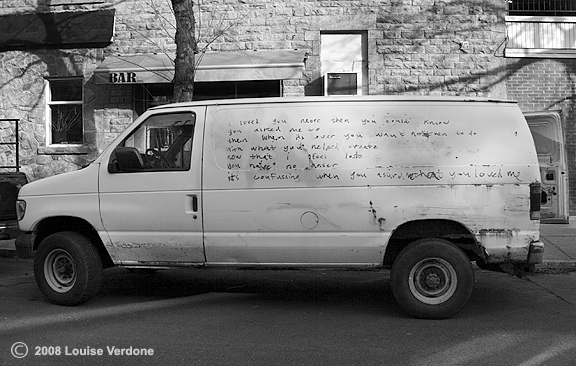 BAR
i loved you more then you could know
you asked me to
then when its over you want then to do
with what you helped create
now that i feel lost
you have no answer
its confussing when you that you loved me
© 2008 Louise Verdone